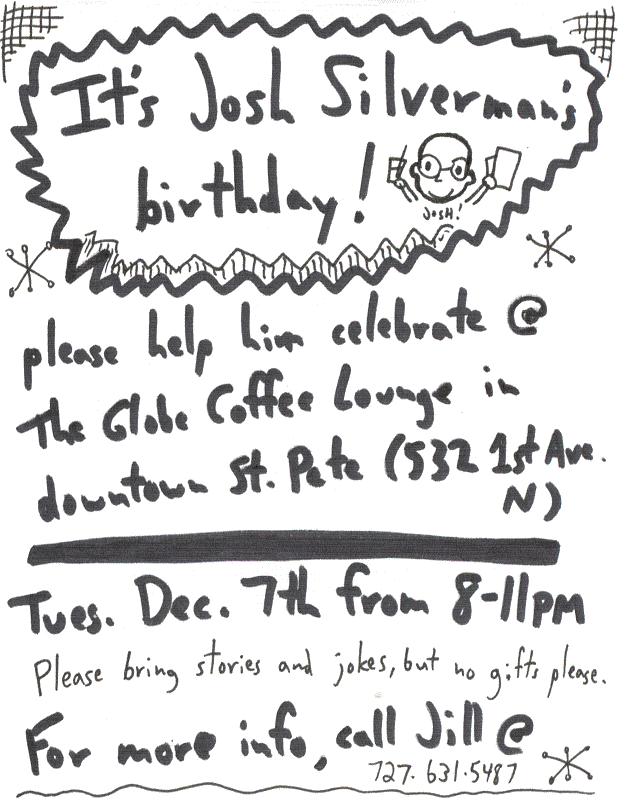 It's Josh Silverman's
birthday!
JOSH!
please help him celebrate @
The Globe Coffee Lounge in
downtown St. Pete (532 1st Ave.
N)
Tues. Dec. 7th from 8-11pm
Please bring stories and jokes, but no gifts please.
For more info, call Jill @
727.631.5487